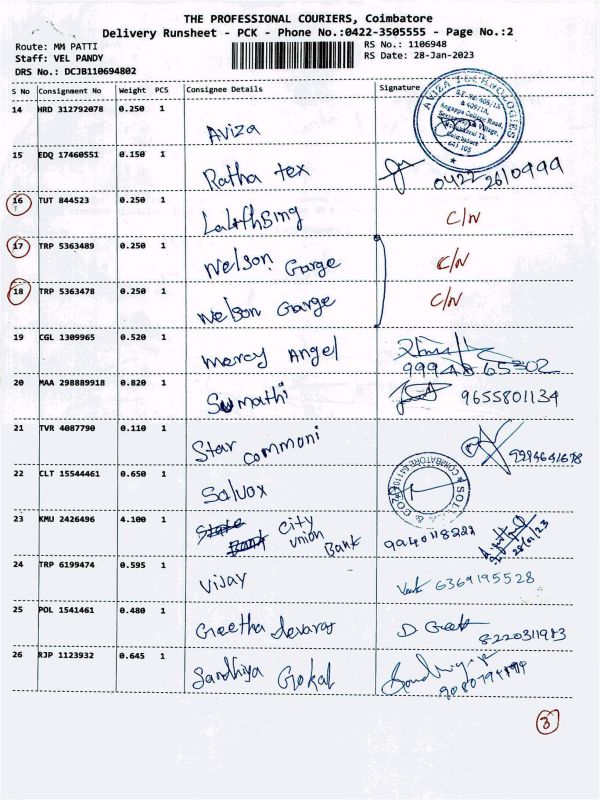 THE PROFESSIONAL COURIERS, Coimbatore
Delivery Runsheet - PCK - Phone No.:0422-3505555 - Page No.:2
Route: MM PATTI RS No.: 1106948
Staff: VEL PANDY RS Date: 28-Jan-2023
DRS No.: DCJB110694802
S No Consignment No Weight PCS Consignee Details Signature
AVIZA TECHNOLOGIES
14 HRD 312792078 0.250 1 Aviza
15 EDQ 17460551 0.150 1 Ratha tex 0422 2610999
16 TUT 844523 0.250 1 C/N
17 TRP 5363489 0.250 1 Nelson Garge C/N
18 TRP 5363478 0.250 1 Nelson Garge C/N
19 CGL 1309965 0.520 1 Mercy Angel
20 MAA 298889918 0.820 1 Sumathi 9655801134
21 TVR 4087790 0.110 1 Star Commoni
22 CLT 15544461 0.650 1 Salvox
23 KMU 2426496 4.100 1 State Bank City Union Bank 9940118222 28/01/23
24 TRP 6199474 0.595 1 Vijay 6369195528
25 POL 1541461 0.480 1 Geetha devaraj
26 RJP 1123932 0.645 1 Sandhiya Gokal
3